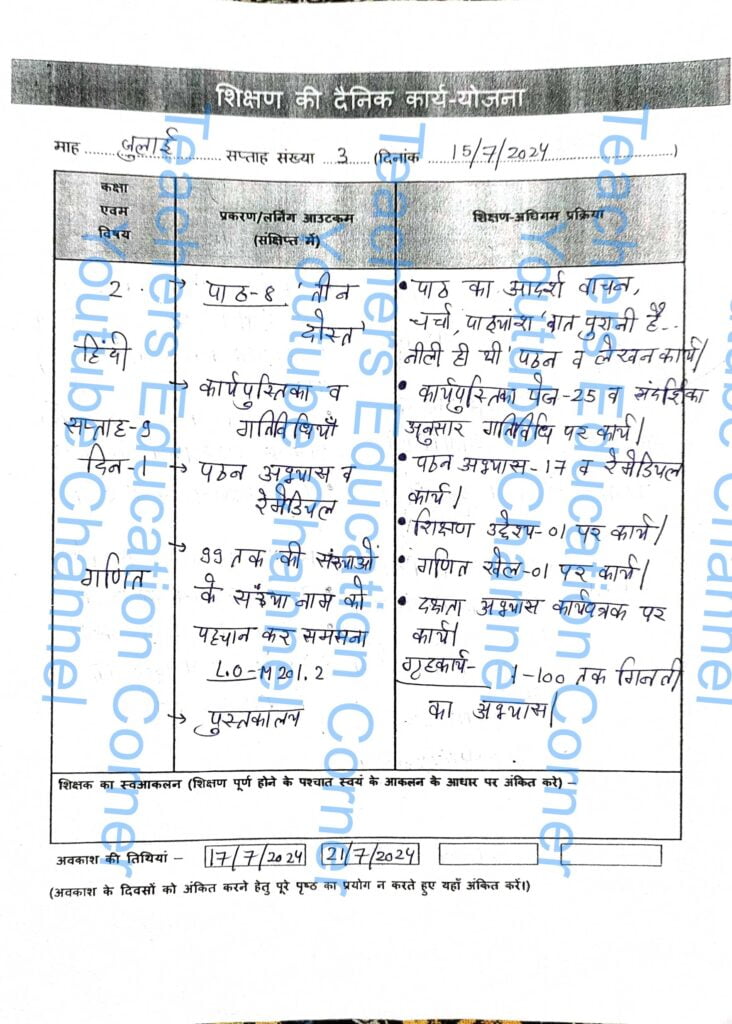 शिक्षण की दैनिक कार्य-योजना
माह जुलाई सप्ताह संख्या 3 (दिनांक 15/7/2024)
कक्षा एवम विषय
प्रकरण/लर्निंग आउटकम (संक्षिप्त में)
शिक्षण-अधिगम प्रक्रिया
2
हिंदी
सप्ताह-9
दिन-1
गणित
→ पाठ-8 'तीन
दोस्त'
→ कार्यपुस्तिका व
गतिविधियाँ
→ पठन अभ्यास व
रेमेडियल
→ 99 तक की संख्याओं
के संख्या नाम को
पहचान कर समझना
L.O-M201.2
→ पुस्तकालय
• पाठ का आदर्श वाचन,
चर्चा, पाठ्यांश 'बात पुरानी है..
नीली ही थी' पठन व लेखन कार्य|
• कार्यपुस्तिका पेज-25 व संदर्शिका
अनुसार गतिविधि पर कार्य|
• पठन अभ्यास-17 व रेमेडियल
कार्य|
• शिक्षण उद्देश्य-01 पर कार्य|
• गणित खेल-01 पर कार्य|
• दक्षता अभ्यास कार्यपत्रक पर
कार्य|
गृहकार्य- 1-100 तक गिनती
का अभ्यास|
शिक्षक का स्वआकलन (शिक्षण पूर्ण होने के पश्चात स्वयं के आकलन के आधार पर अंकित करे) –
अवकाश की तिथियां – 17/7/2024 21/7/2024
(अवकाश के दिवसों को अंकित करने हेतु पूरे पृष्ठ का प्रयोग न करते हुए यहाँ अंकित करें।)
Teachers Education Corner
Youtube Channel
Teachers Education Corner
Youtube Channel
Teachers Education Corner
Youtube Channel